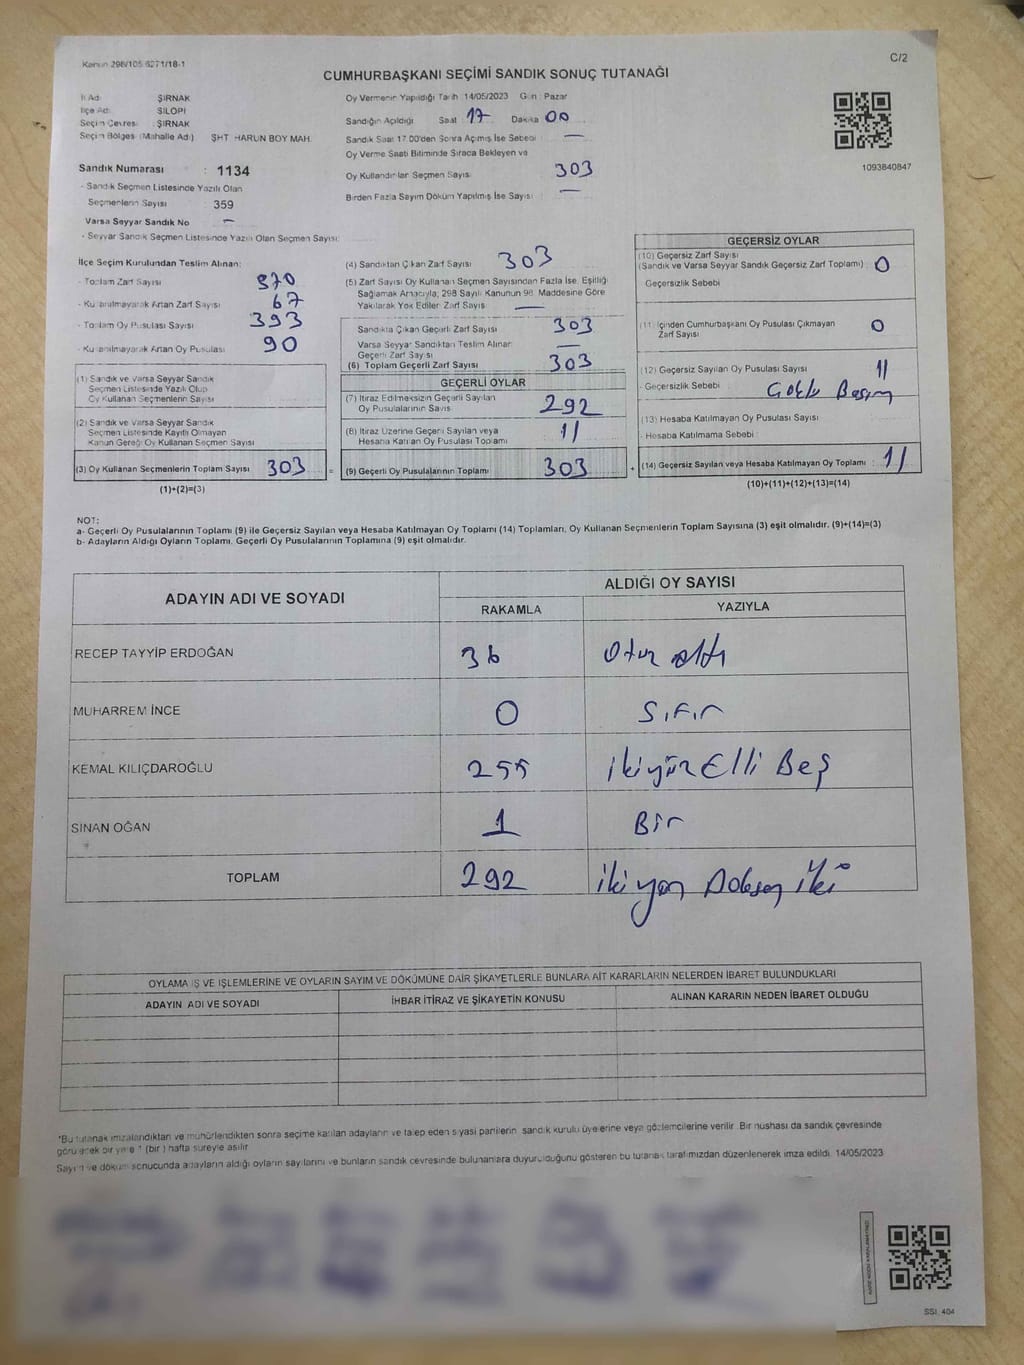 Kanun 298/105 6271/18-1
C/2
CUMHURBAŞKANI SEÇİMİ SANDIK SONUÇ TUTANAĞI
İl Adı ŞIRNAK
İlçe Adı SİLOPİ
Seçim Çevresi : ŞIRNAK
Seçim Bölgesi (Mahalle Adı) ŞHT HARUN BOY MAH.
Sandık Numarası : 1134
- Sandık Seçmen Listesinde Yazılı Olan
Seçmenlerin Sayısı : 359
Varsa Seyyar Sandık No —
- Seyyar Sandık Seçmen Listesinde Yazılı Olan Seçmen Sayısı:
Oy Vermenin Yapıldığı Tarih 14/05/2023 Gün : Pazar
Sandığın Açıldığı Saat 17 Dakika 00
Sandık Saat 17.00'den Sonra Açılmış İse Sebebi : —
Oy Verme Saati Bitiminde Sırada Bekleyen ve
Oy Kullandırılan Seçmen Sayısı 303
Birden Fazla Sayım Döküm Yapılmış İse Sayısı : —
1093840847
İlçe Seçim Kurulundan Teslim Alınan:
- Toplam Zarf Sayısı 370
- Kullanılmayarak Artan Zarf Sayısı 67
- Toplam Oy Pusulası Sayısı 393
- Kullanılmayarak Artan Oy Pusulası 90
(1) Sandık ve Varsa Seyyar Sandık
Seçmen Listesinde Yazılı Olup
Oy Kullanan Seçmenlerin Sayısı
(2) Sandık ve Varsa Seyyar Sandık
Seçmen Listesinde Kayıtlı Olmayan
Kanun Gereği Oy Kullanan Seçmen Sayısı
(3) Oy Kullanan Seçmenlerin Toplam Sayısı 303 =
(1)+(2)=(3)
(4) Sandıktan Çıkan Zarf Sayısı 303
(5) Zarf Sayısı Oy Kullanan Seçmen Sayısından Fazla İse, Eşitliği
Sağlamak Amacıyla, 298 Sayılı Kanunun 98. Maddesine Göre
Yakılarak Yok Edilen Zarf Sayısı —
Sandıkta Çıkan Geçerli Zarf Sayısı 303
Varsa Seyyar Sandıktan Teslim Alınan
Geçerli Zarf Sayısı —
(6) Toplam Geçerli Zarf Sayısı 303
GEÇERLİ OYLAR
(7) İtiraz Edilmeksizin Geçerli Sayılan
Oy Pusulalarının Sayısı 292
(8) İtiraz Üzerine Geçerli Sayılan veya
Hesaba Katılan Oy Pusulası Toplamı 11
(9) Geçerli Oy Pusulalarının Toplamı 303 +
GEÇERSİZ OYLAR
(10) Geçersiz Zarf Sayısı
(Sandık ve Varsa Seyyar Sandık Geçersiz Zarf Toplamı) : 0
Geçersizlik Sebebi
(11) İçinden Cumhurbaşkanı Oy Pusulası Çıkmayan
Zarf Sayısı 0
(12) Geçersiz Sayılan Oy Pusulası Sayısı 11
- Geçersizlik Sebebi Çoklu Basım
(13) Hesaba Katılmayan Oy Pusulası Sayısı
- Hesaba Katılmama Sebebi
(14) Geçersiz Sayılan veya Hesaba Katılmayan Oy Toplamı : 11
(10)+(11)+(12)+(13)=(14)
NOT:
a- Geçerli Oy Pusulalarının Toplamı (9) ile Geçersiz Sayılan veya Hesaba Katılmayan Oy Toplamı (14) Toplamları, Oy Kullanan Seçmenlerin Toplam Sayısına (3) eşit olmalıdır. (9)+(14)=(3)
b- Adayların Aldığı Oyların Toplamı, Geçerli Oy Pusulalarının Toplamına (9) eşit olmalıdır.
ADAYIN ADI VE SOYADI
ALDIĞI OY SAYISI
RAKAMLA YAZIYLA
RECEP TAYYİP ERDOĞAN 36 Otuz altı
MUHARREM İNCE 0 Sıfır
KEMAL KILIÇDAROĞLU 255 ikiyüz Elli Beş
SİNAN OĞAN 1 Bir
TOPLAM 292 ikiyüz Doksan iki
OYLAMA İŞ VE İŞLEMLERİNE VE OYLARIN SAYIM VE DÖKÜMÜNE DAİR ŞİKAYETLERLE BUNLARA AİT KARARLARIN NELERDEN İBARET BULUNDUKLARI
ADAYIN ADI VE SOYADI İHBAR İTİRAZ VE ŞİKAYETİN KONUSU ALINAN KARARIN NEDEN İBARET OLDUĞU
*Bu tutanak imzalandıktan ve mühürlendikten sonra seçime katılan adayların ve talep eden siyasi partilerin sandık kurulu üyelerine veya gözlemcilerine verilir. Bir nüshası da sandık çevresinde
görülecek bir yere 1 (bir) hafta süreyle asılır.
Sayım ve döküm sonucunda adayların aldığı oyların sayılarını ve bunların sandık çevresinde bulunanlara duyurulduğunu gösteren bu tutanak tarafımızdan düzenlenerek imza edildi. 14/05/2023
SSİ. 404